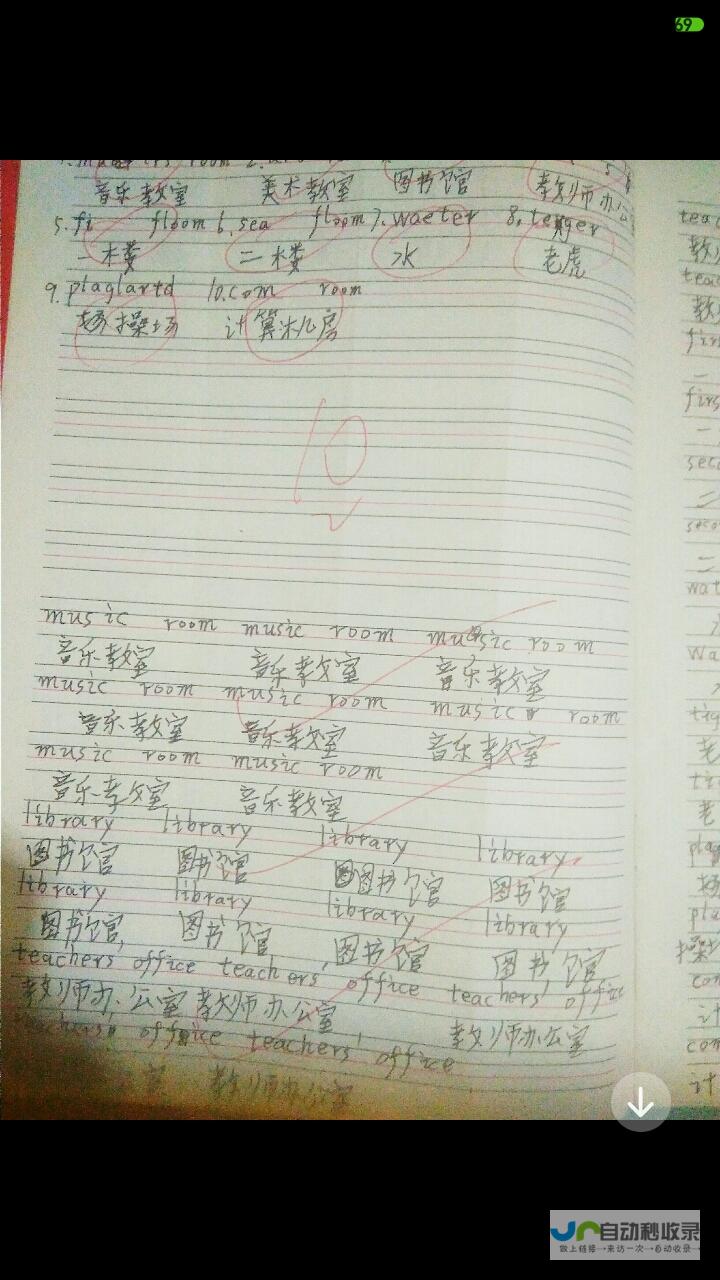 69
音乐教室 美术教室 图书馆 教师办公
5. fi floom 6. sea floom 7. waeter 8. terger
一楼 二楼 水 老虎
9. plaglartd 10. com room
场操场 计算机房
10
music room music room music room
音乐教室 音乐教室 音乐教室
music room music room music room
音乐教室 音乐教室 音乐教室
music room music room
音乐教室 音乐教室
library library library library
图书馆 图书馆 图书馆 图书馆
library library library library
图书馆 图书馆 图书馆 图书馆
teachers' office teachers' office teachers' offic
教师办公室 教师办公室 教师办公室
teachers' office teachers' office
教师办公室
teac
教
teac
教
fir
一
firs
一
seco
二
seco
二
wat
wa
tig
老
ti
老
pla
场
pla
操场
com
计
com
计
自动秒收录
做上链接→来访一次→自动收录→